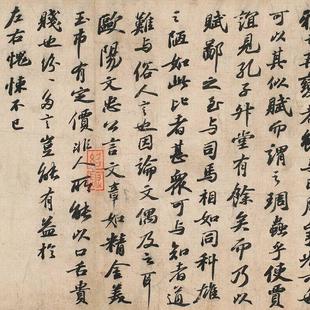 可以其似賦而謂之琱蟲乎使賈
誼見孔子升堂有餘矣而乃以
賦鄙之至与司馬相如同科雄
之陋如此比者甚衆可与知者道
難与俗人言也因論文偶及之耳
歐陽文忠公言文章如精金美
玉市有定價非人所能以口舌貴
賤也紛〻多言豈能有益於
左右愧悚不已